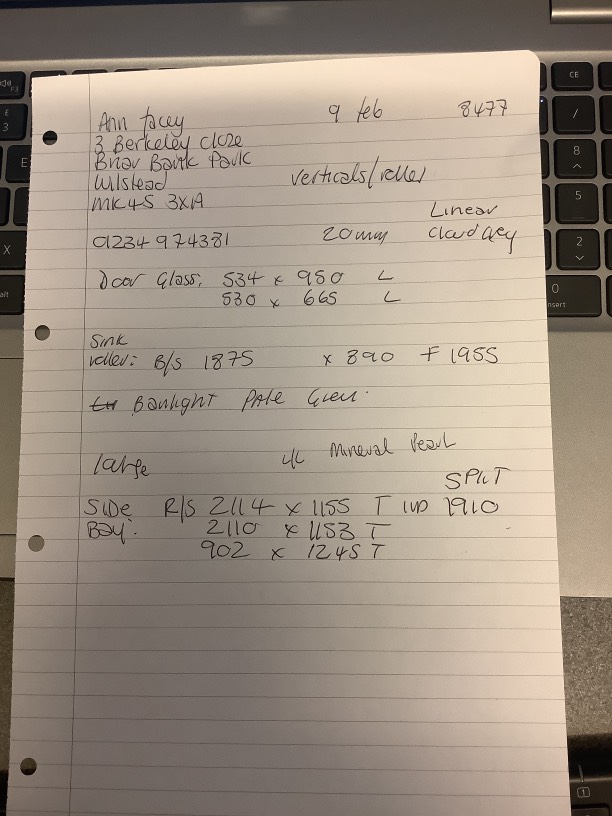 Ann Facey 9 feb 8477
3 Berkeley Close
Briar Bank Park
Wilstead verticals/roller
MK45 3XA
Linear
01234 974381 20mm Cloud Grey
Door Glass. 534 x 950 L
530 x 665 L
Sink
roller: B/S 1875 x 890 F 1955
Banlight PALE Green.
large Mineral Pearl
SPLIT
SIDE R/S 2114 x 1155 T 1910
BAY: 2110 x 1153 T
902 x 1245 T